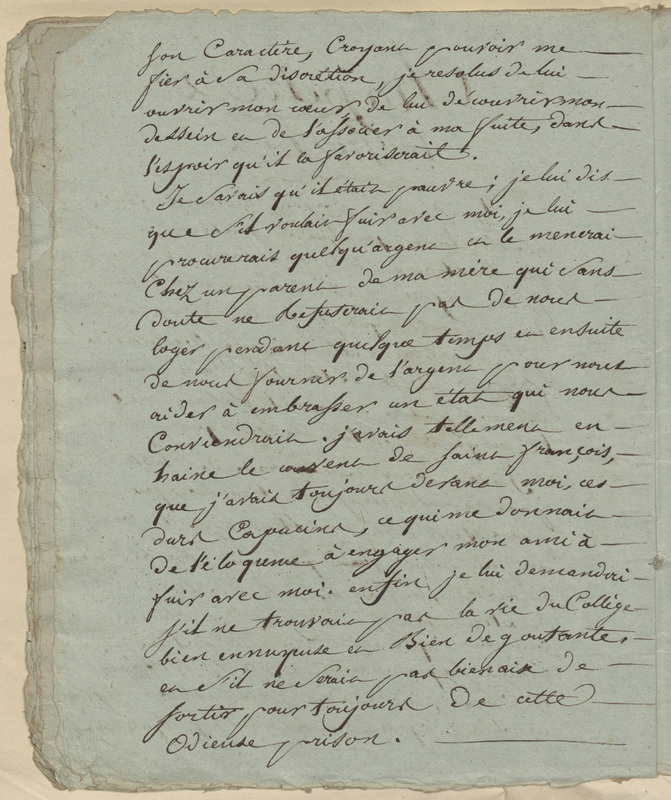 son Caractère, Croyant pouvoir me
fier à Sa discretion, je resolus de lui
ouvrir mon cœur, de lui decouvrir mon
dessein et de l'associer à ma fuite, dans
l'espoir qu'il la favoriserait.
Je Savais qu'il était pauvre; je lui dis
que s'il voulait fuir avec moi, je lui
procurerais quelqu'argent et le menerai
Chez un parent de ma mére qui Sans
doute ne Refuserait pas de nous
loger pendant quelque temps et ensuite
de nous fournir de l'argent pour nous
aider à embrasser un état qui nous
Conviendrait. j'avais tellement en
haine le couvent de Saint françois,
que j'avais toujours devant moi, ces
durs Capucins, ce qui me donnait
de l'éloquence à engager mon ami à
fuir avec moi. enfin je lui demandai
s'il ne trouvait pas la vie du Collège
bien ennuyeuse et Bien degoutante,
et s'il ne Serait pas bienaise de
sortir pour toujours De cette
Odieuse prison.